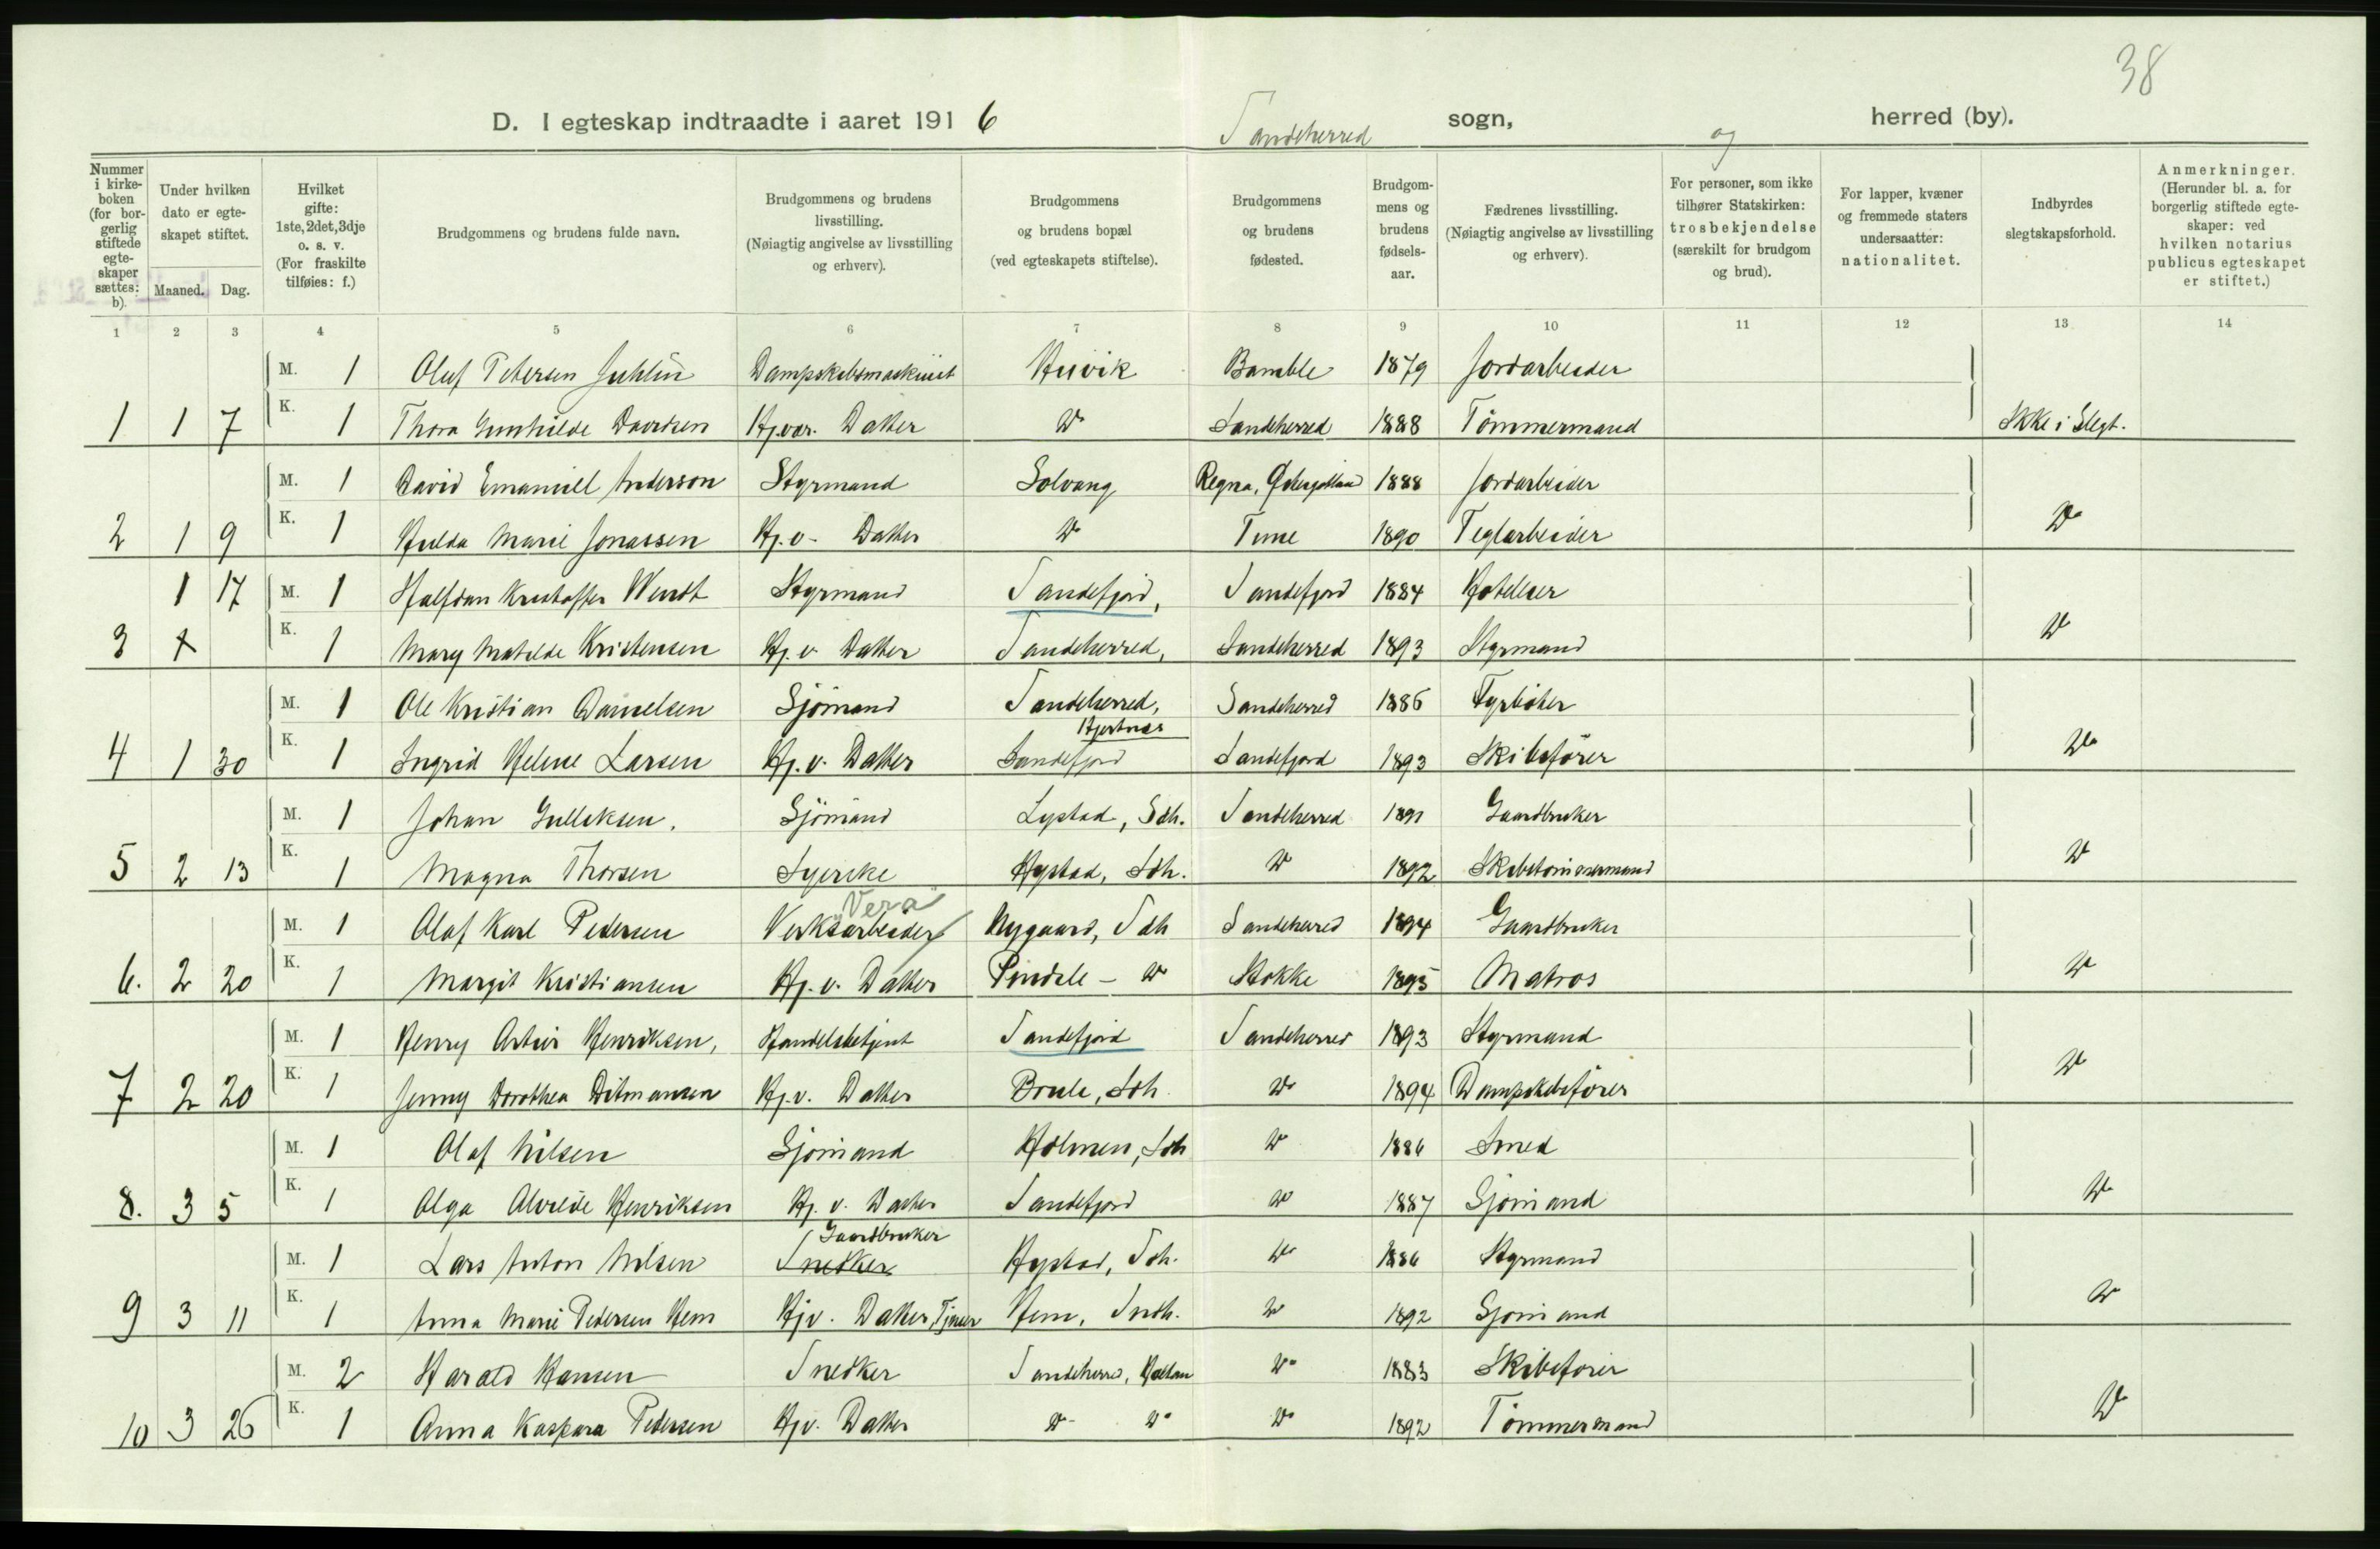 38
D. I egteskap indtraadte i aaret 1916 Sandeherred sogn, og herred (by).
Nummer i kirke-boken (for bor-gerlig stiftede egte-skaper sættes: b).
Under hvilken dato er egte-skapet stiftet.
Maaned. Dag.
Hvilket gifte: 1ste, 2det, 3dje o. s. v. (For fraskilte tilføies: f.)
Brudgommens og brudens fulde navn.
Brudgommens og brudens livsstilling. (Nøiagtig angivelse av livsstilling og erhverv).
Brudgommens og brudens bopæl (ved egteskapets stiftelse).
Brudgommens og brudens fødested.
Brudgom-mens og brudens fødsels-aar.
Fædrenes livsstilling. (Nøiagtig angivelse av livsstilling og erhverv).
For personer, som ikke tilhører Statskirken: trosbekjendelse (særskilt for brudgom og brud).
For lapper, kvæner og fremmede staters undersaatter: nationalitet.
Indbyrdes slegtskapsforhold.
Anmerkninger. (Herunder bl. a. for borgerlig stiftede egte-skaper: ved hvilken notarius publicus egteskapet er stiftet.)
1 2 3 4 5 6 7 8 9 10 11 12 13 14
M. 1 Oluf Petersen Juhlin Dampskibsmaskinist Huvik Bamble 1879 Jordarbeider
1 1 7 K. 1 Thora Gunhilde Davidsen Hj.vær. Datter Do Sandeherred 1888 Tömmermand Ikke i Slegt.
M. 1 David Emanuel Anderson Styrmand Solvang Regna, Østergøtland 1888 Jordarbeider
2 1 9 K. 1 Hulda Marie Jonassen Hj. v. Datter Do Time 1890 Teglarbeider Do
1 17 M. 1 Halfdan Kristoffer Wendt Styrmand Sandefjord, Sandefjord 1884 Hoteleier
3 K. 1 Mary Matilde Kristensen Hj. v. Datter Sandeherred, Sandeherred 1893 Styrmand Do
M. 1 Ole Kristian Danielsen Sjömand Sandeherred, Sandeherred 1886 Fyrbøter
Hjertnes
4 1 30 K. 1 Ingrid Helene Larsen Hj. v. Datter Sandefjord Sandefjord 1893 Skibsfører Do
M. 1 Johan Gulliksen. Sjömand Lystad, Sdh. Sandeherred 1891 Gaardbruker
5 2 13 K. 1 Magna Thorsen Syerske Hystad, Sdh. Do 1892 Skibstömmermand Do
"Vera"
M. 1 Olaf Karl Pedersen Verksarbeider Nygaard, Sdh Sandeherred 1894 Gaardbruker
6. 2 20 K. 1 Margit Kristiansen Hj. v. Datter Pindsle - Do Stokke 1895 Matros Do
M. 1 Henry Artur Henriksen, Handelsbetjent Sandefjord Sandeherred 1893 Styrmand
7 2 20 K. 1 Jenny Dorothea Ditmansen Hj. v. Datter Do 1894 Dampskibsfører Do
M. 1 Olaf Nilsen Sjömand Holmen, Sdh Do 1886 Smed
8. 3 5 K. 1 Olga Alvilde Henriksen Hj. v. Datter Sandefjord Do 1887 Sjömand Do
Gaardbruker
M. 1 Lars Anton Nilsen Snedker Hystad, Sdh. Do 1886 Styrmand
9 3 11 K. 1 Anna Marie Pedersen Hem Hjv. Datter, Tjener Hem, Sndh. Do 1892 Sjömand Do
M. 2 Harald Hansen Snedker Sandeherred, Haslan Do 1883 Skibsfører
10 3 26 K. 1 Anna Kaspara Pedersen Hjv. Datter Do Do Do 1892 Tömmermand Do